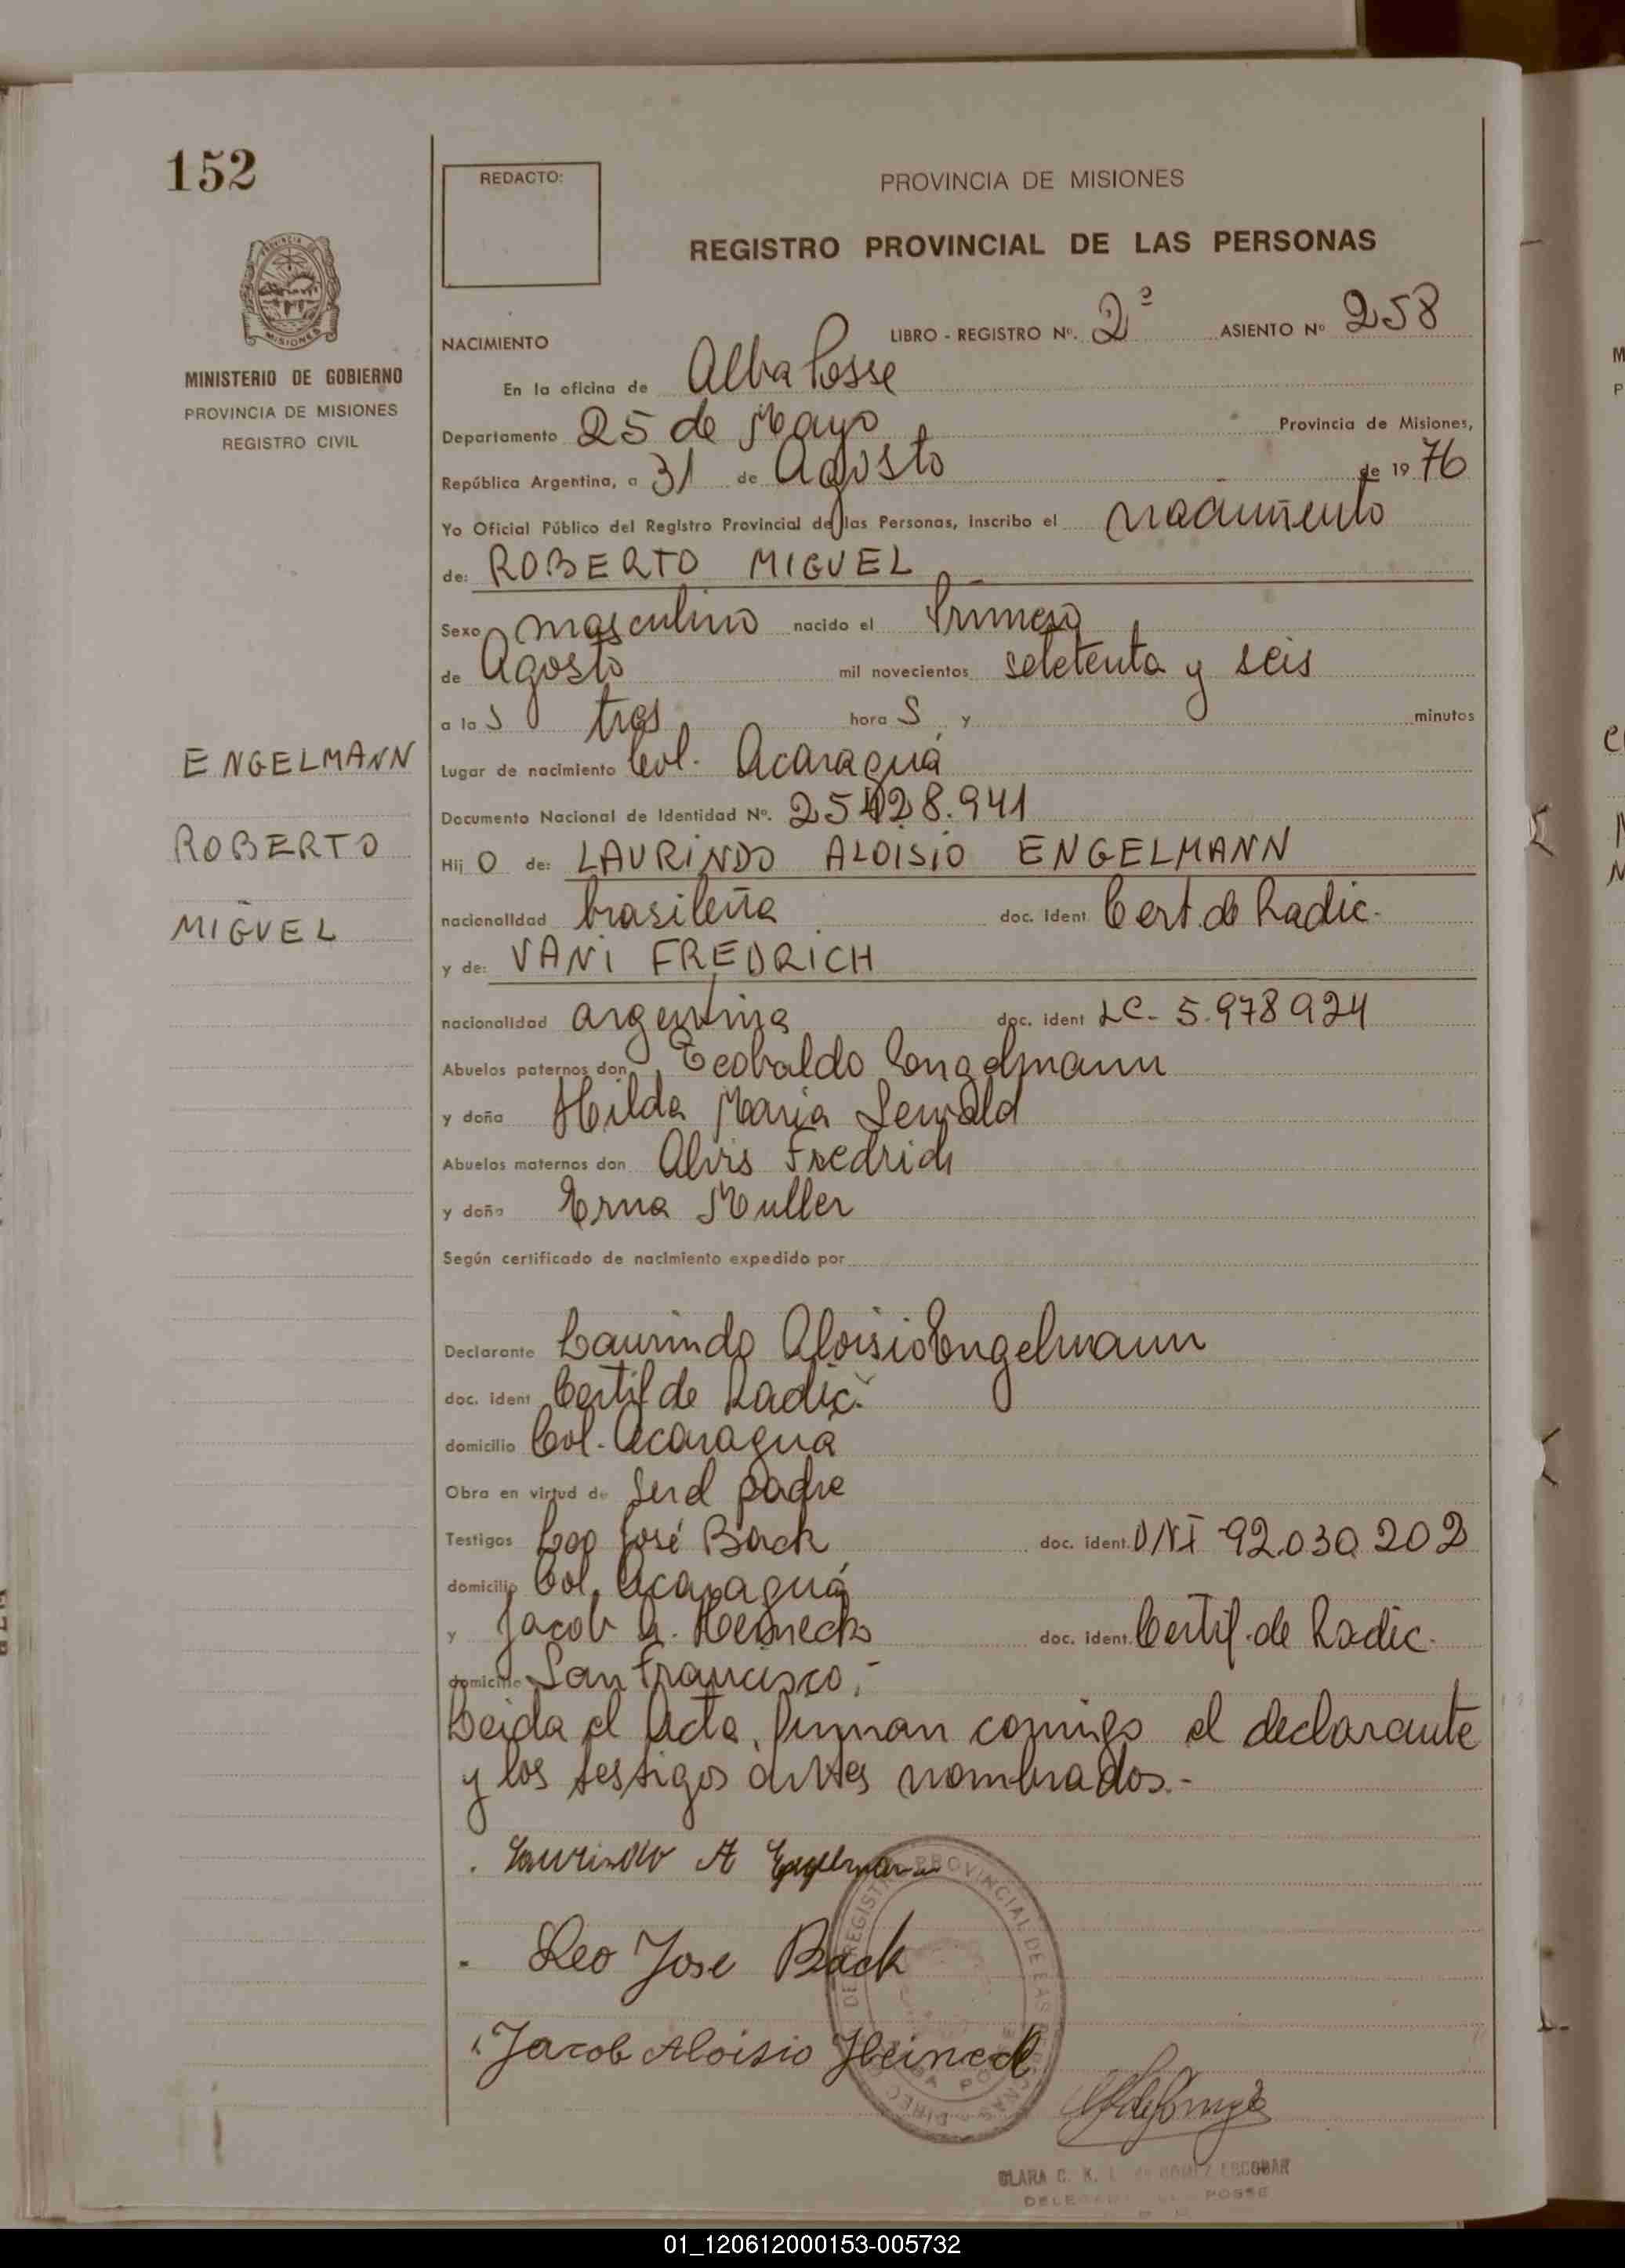 152
REDACTO:
PROVINCIA DE MISIONES
REGISTRO PROVINCIAL DE LAS PERSONAS
PROVINCIA DE MISIONES
MINISTERIO DE GOBIERNO
PROVINCIA DE MISIONES
REGISTRO CIVIL
NACIMIENTO LIBRO - REGISTRO Nº. 2º ASIENTO Nº 258
En la oficina de Alba Posse
Departamento 25 de Mayo Provincia de Misiones,
República Argentina, a 31 de Agosto de 1976
Yo Oficial Público del Registro Provincial de las Personas, inscribo el nacimiento
de: ROBERTO MIGUEL
Sexo masculino nacido el Primero
de Agosto mil novecientos setetenta y seis
a las tres horas y minutos
Lugar de nacimiento Col. Acaraguá
Documento Nacional de Identidad Nº. 25.428.941
Hijo de: LAURINDO ALOISIO ENGELMANN
nacionalidad brasileña doc. ident Cert. de Radic.
y de: VANI FREDRICH
nacionalidad argentina doc. ident LC- 5.978924
Abuelos paternos don Teobaldo Engelmann
y doña Hilda Maria Sewald
Abuelos maternos don Alvis Fredrich
y doña Erna Muller
Según certificado de nacimiento expedido por
Declarante Laurindo Aloisio Engelmann
doc. ident Certif de Radic.
domicilio Col. Acaragua
Obra en virtud de Ser el padre
Testigos Leo José Back doc. ident. DNI 92.030.202
domicilio Col. Acaraguá
y Jacob A. Heineck doc. ident. Certif. de Radic.
domicilio San Francisco.-
Leida el Acta, firman comigo el declarante
y los testigos antes nombrados.-
Laurindo A Engelmann
Leo Jose Back
Jacob Aloisio Heineck
CLARA C. K. L. de GOMEZ ESCOBAR
POSSE
ENGELMANN
ROBERTO
MIGUEL
01_120612000153-005732